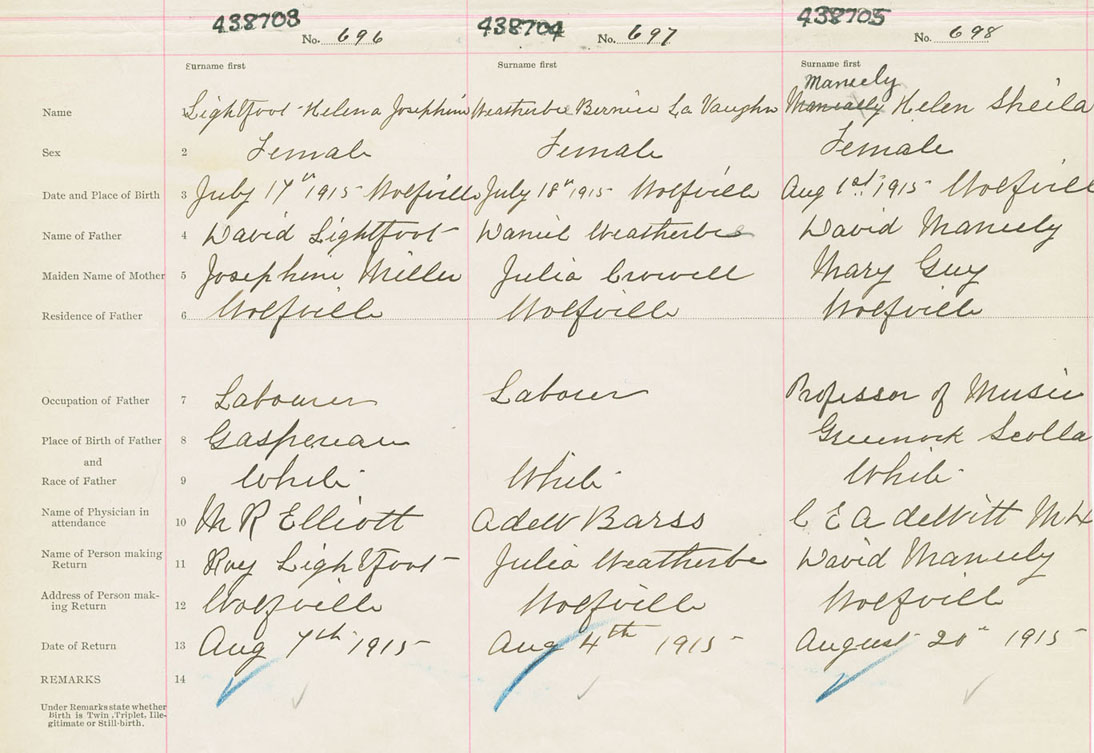 438703 438704 438705
No. 696 No. 697 No. 698
Surname first Surname first Surname first
Maneely
Name 1 Lightfoot Helena Josephine Weatherbe Bernice La Vaughn Helen Sheila
Sex 2 Female Female Female
Date and Place of Birth 3 July 17th 1915 Wolfville July 18th 1915 Wolfville Aug 1st 1915 Wolfville
Name of Father 4 David Lightfoot Daniel Weatherbe David Maneely
Maiden Name of Mother 5 Josephine Miller Julia Crowell Mary Guy
Residence of Father 6 Wolfville Wolfville Wolfville
Occupation of Father 7 Labourer Labourer Professor of Music
Place of Birth of Father 8 Gaspereau Greenock Scotla
and
Race of Father 9 White White White
Name of Physician in
attendance 10 M R Elliott AdeW Barss C E A deWitt MD
Name of Person making
Return 11 Roy Lightfoot Julia Weatherbe David Maneely
Address of Person mak-
ing Return 12 Wolfville Wolfville Wolfville
Date of Return 13 Aug 7th 1915 Aug 4th 1915 August 20th 1915
REMARKS 14
Under Remarks state whether
Birth is Twin, Triplet, Ille-
gitimate or Still-birth.